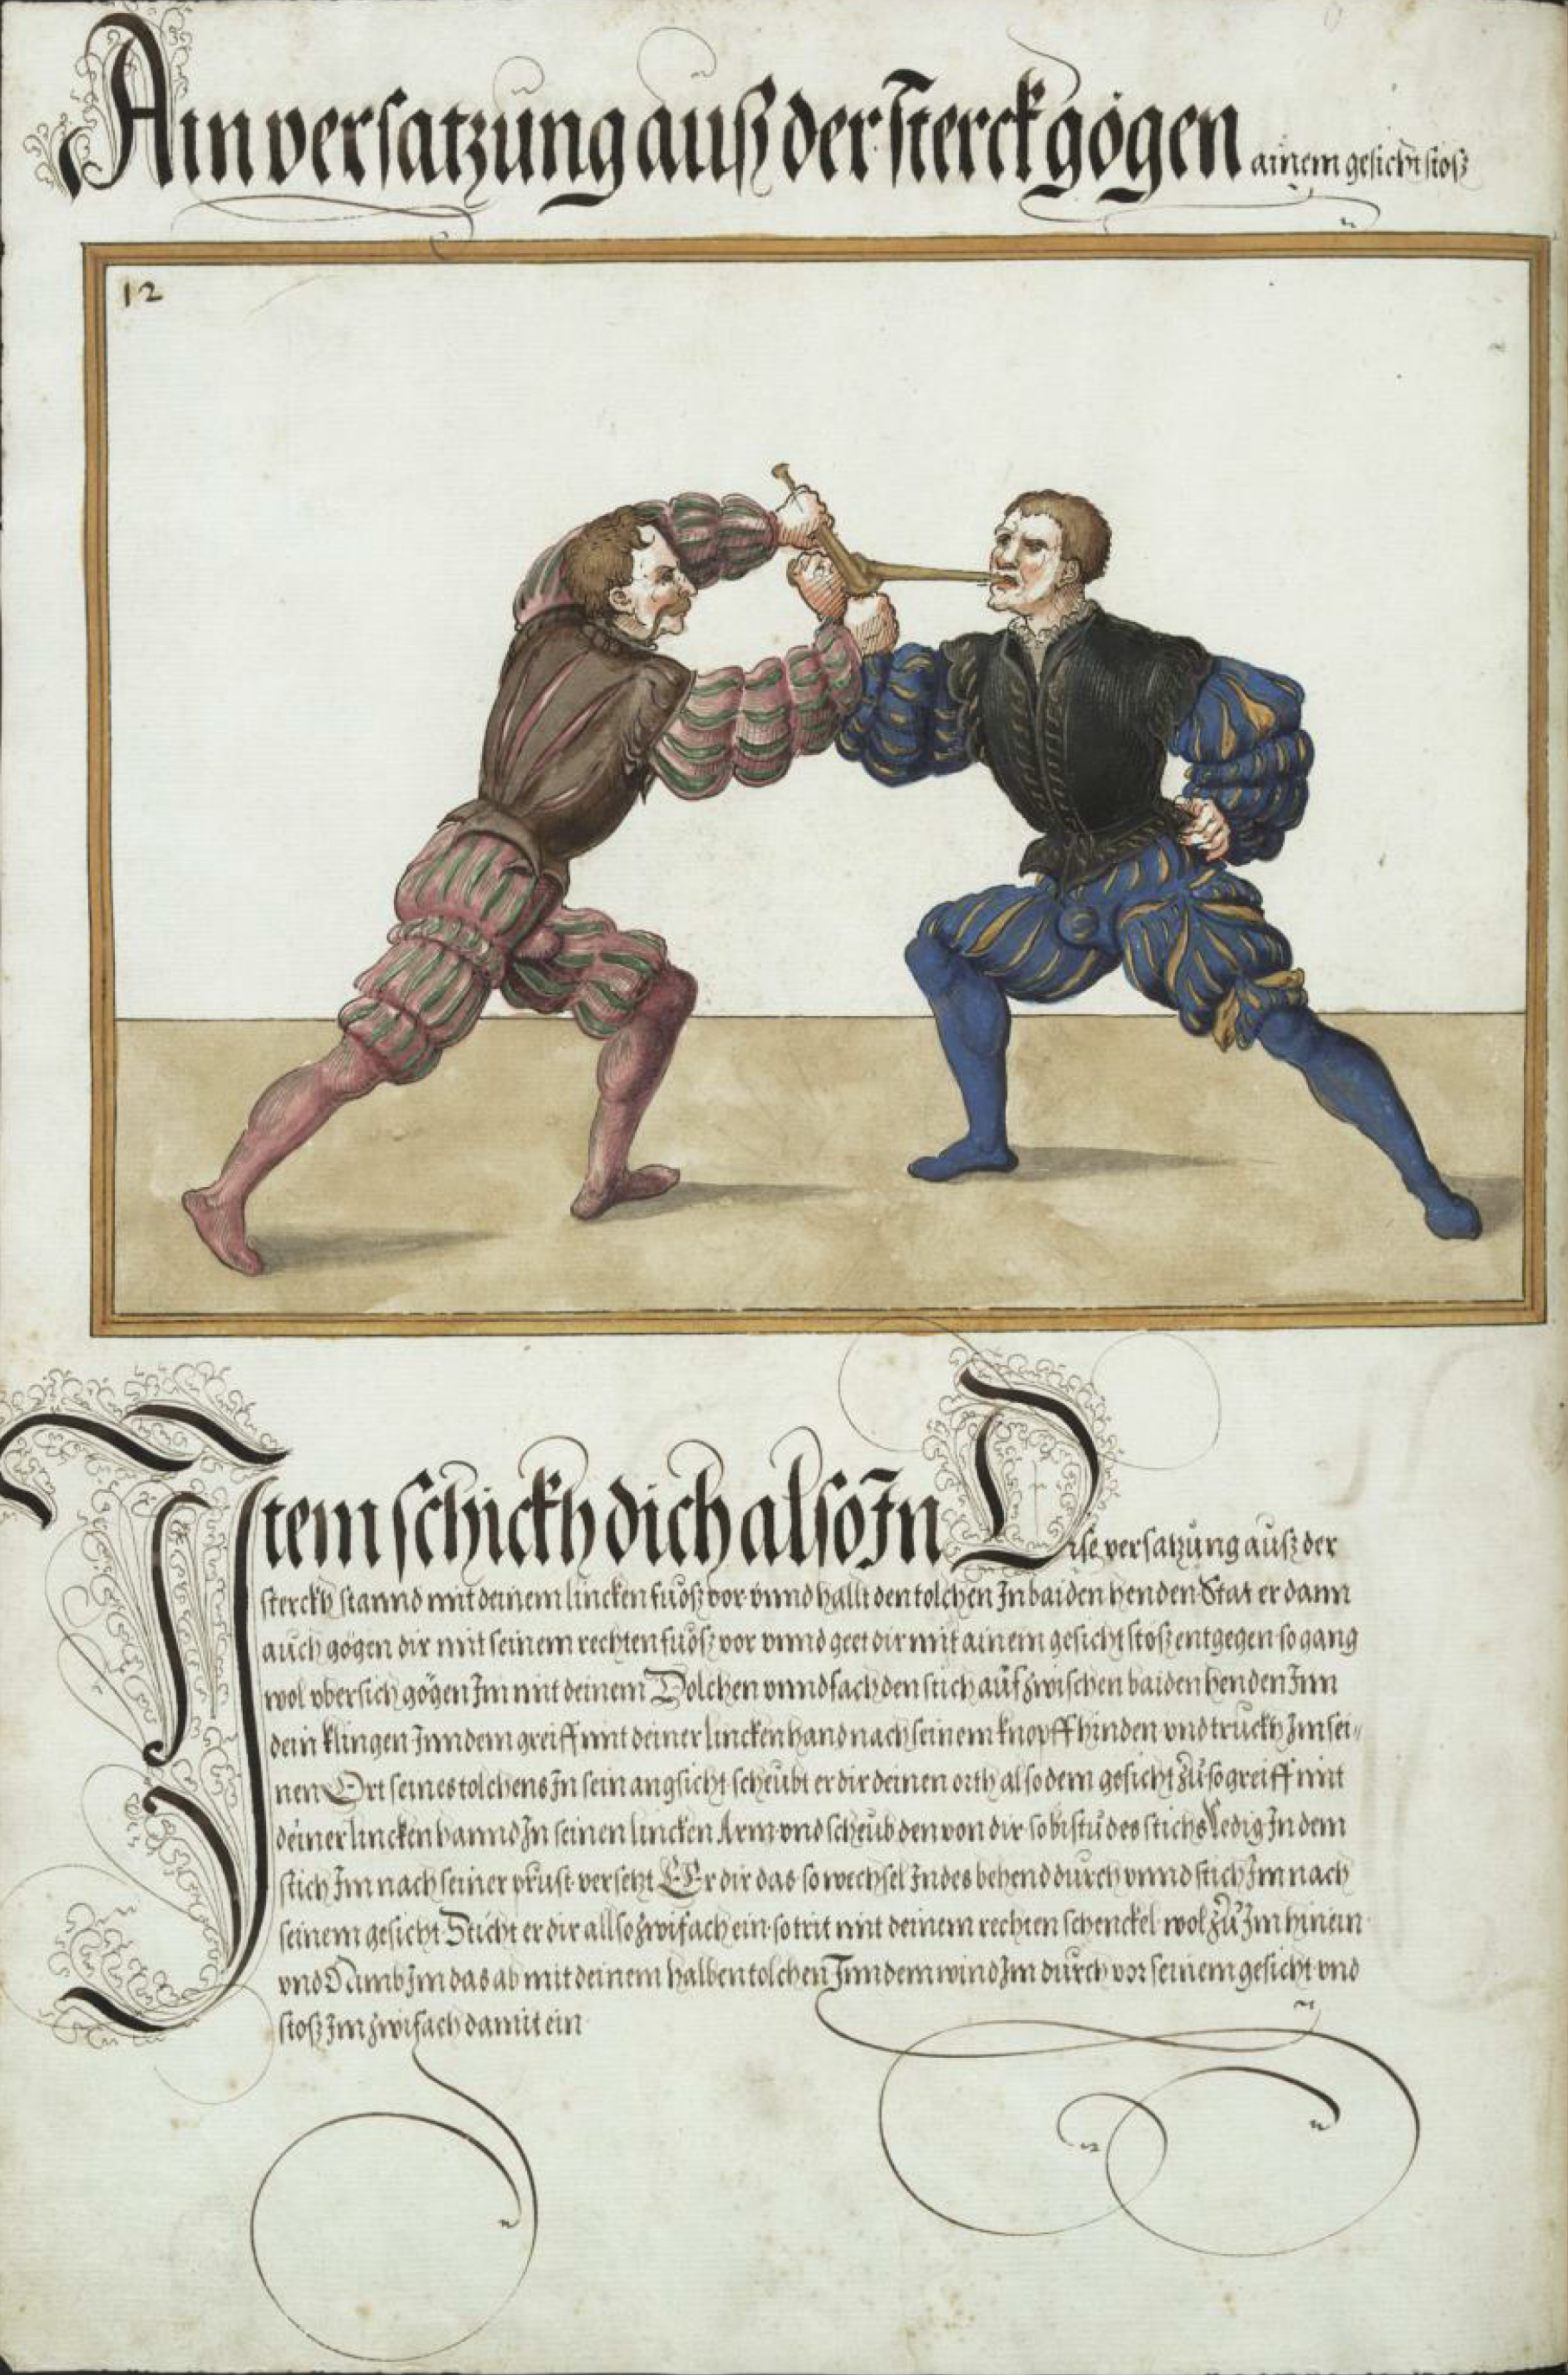 Ain versatzung auß der sterck gögen ainem gesicht stoß
12
Item schickh dich also Jn Dise versatzung auß der
sterckh stannd mit deinem lincken fuoß vor vnnd hallt den tolchen Jn baiden henden Stat er dann
auch gögen dir mit seinem rechten fuoß vor vnnd geet dir mit ainem gesicht stoß entgegen so gang
wol vbersich gögen Jm mit deinem Dolchen vnnd fach den stich auf zwischen baiden henden Jnn
dein klingen Jnn dem greiff mit deiner lincken hand nach seinem knopff hinden vnd truckh Jm sei〃
nen Ort seines tolchens Jn sein angsicht scheubt er dir deinen orth also dem gesicht zů so greiff mit
deiner lincken hannd Jn seinen lincken Arm vnd scheub den von dir so bistu des stichs ledig Jn dem
stich Jm nach seiner prust versetzt Er dir das so wechsel Jndes behend durch vnnd stich Jm nach
seinem gesicht Sticht er dir allso zwifach ein so trit mit deinem rechten schenckel wol zů Jm hinein
vnd Nimb Jm das ab mit deinem halben tolchen Jnn dem wind Jm durch vor seinem gesicht vnd
stoß Jm zwifach damit ein